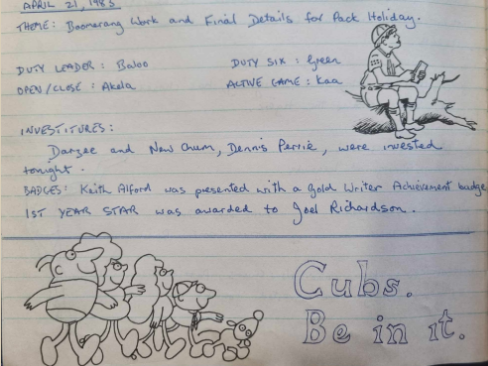 APRIL 21, 1985
THEME: Boomerang Work and Final Details for Pack Holiday.
DUTY LEADER: Baloo DUTY SIX: Green
OPEN/CLOSE: Akela ACTIVE GAME: Kaa
INVESTITURES:
Darzee and New Chum, Dennis Perrie, were invested
tonight.
BADGES: Keith Alford was presented with a Gold Writer Achievement badge
1ST YEAR STAR was awarded to Joel Richardson.
Cubs.
Be in it.